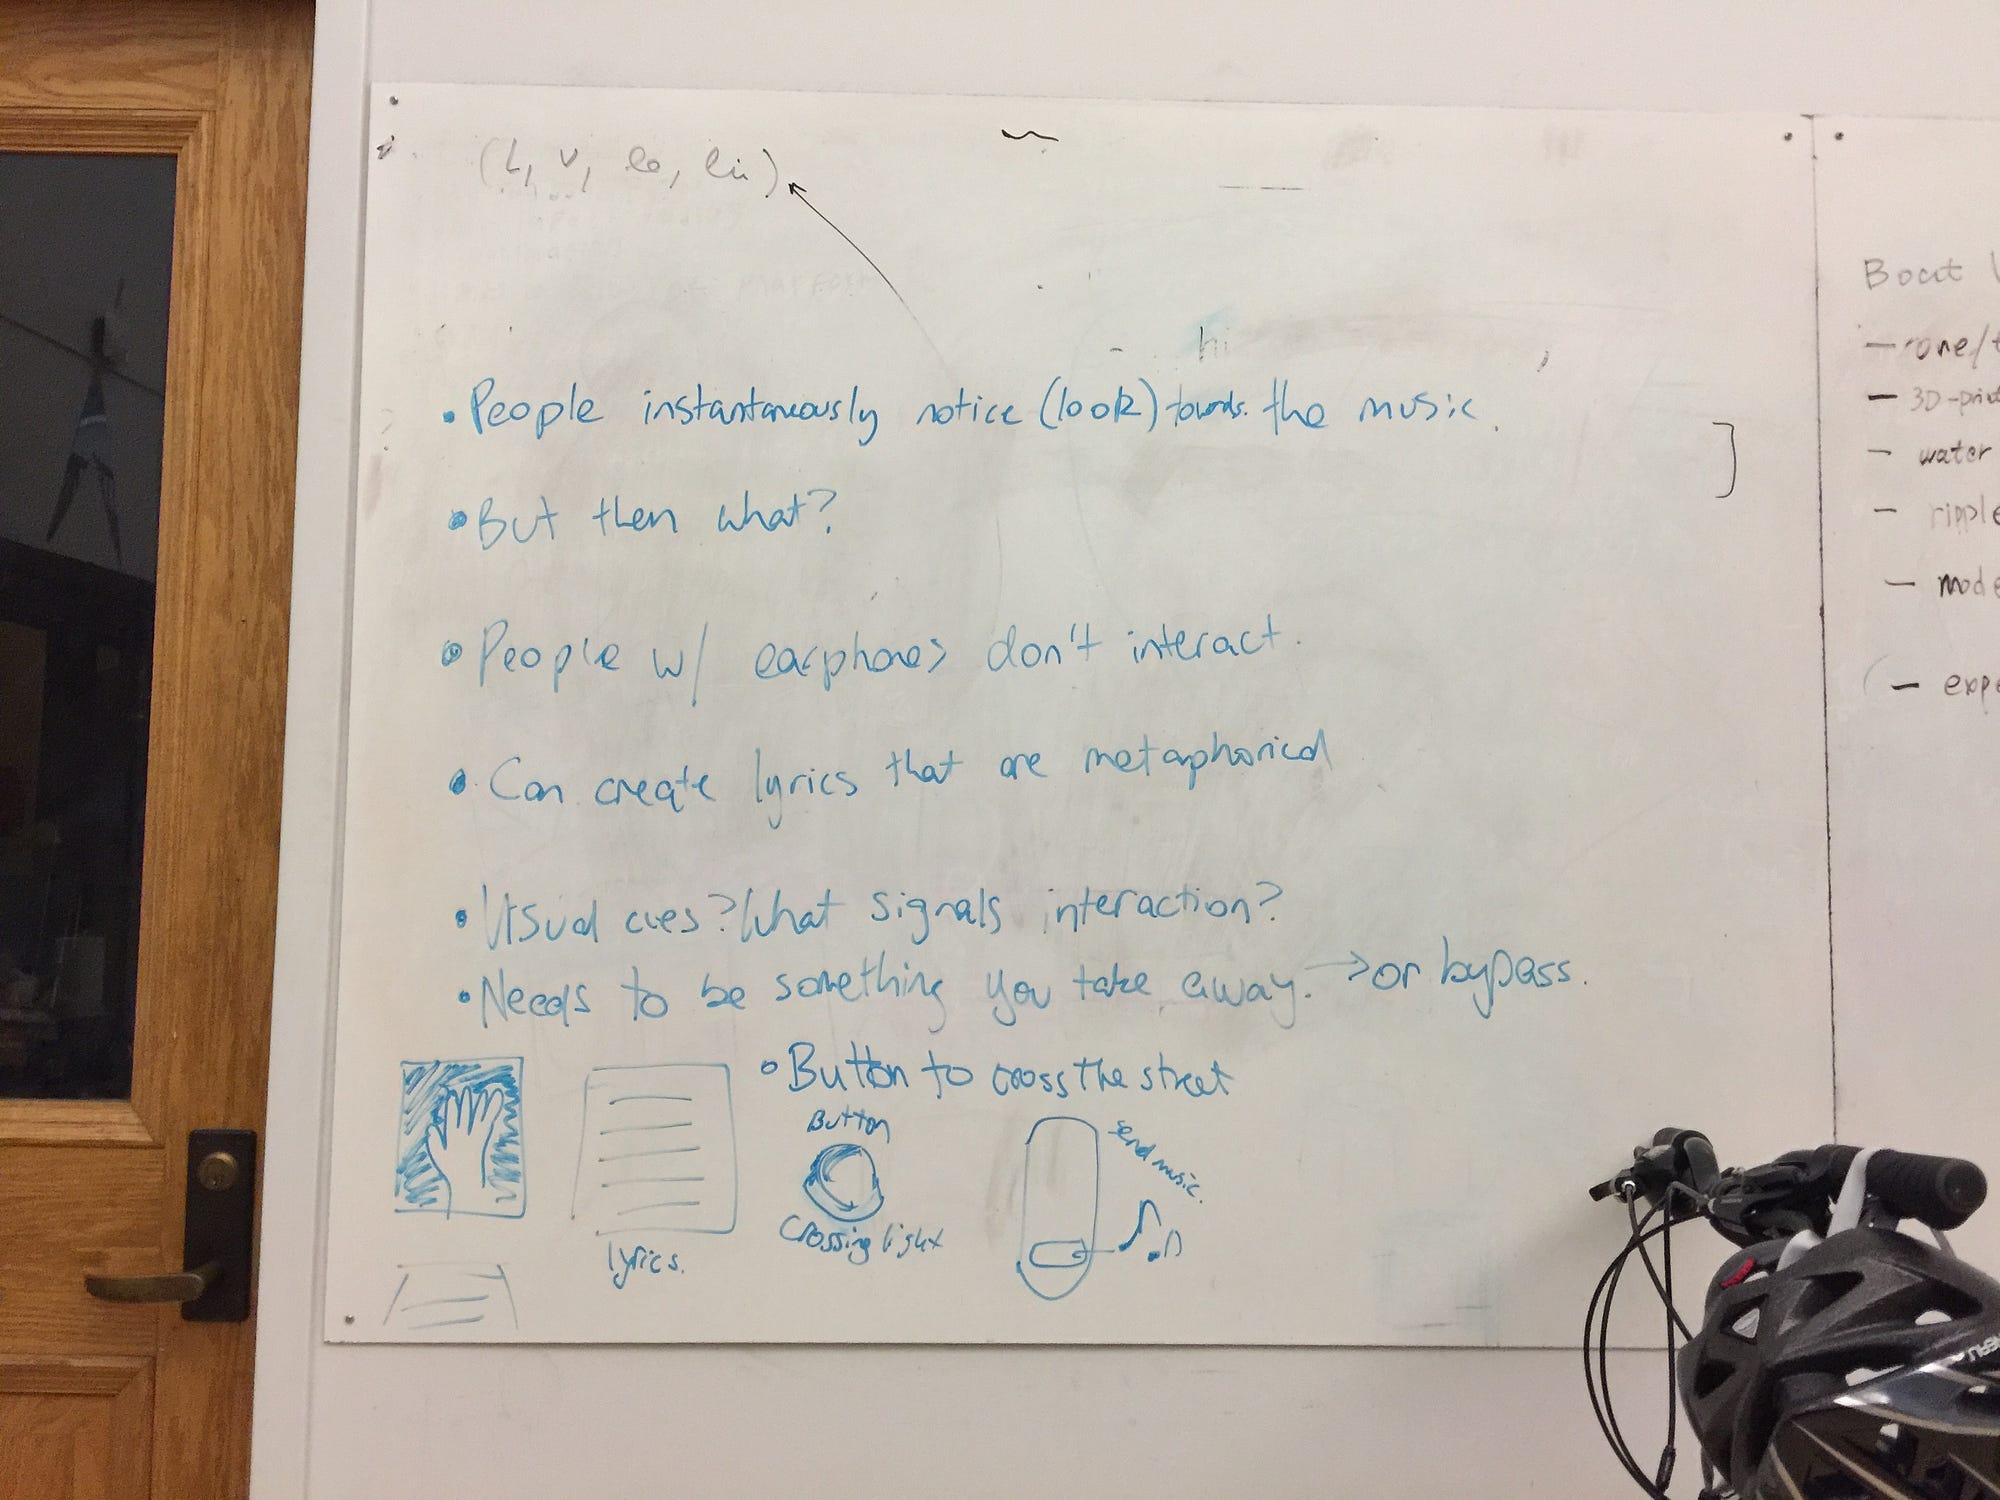 hi
• People instantaneously notice (look) towards the music.
• But then what?
• People w/ earphones don't interact.
• Can create lyrics that are metaphorical
• Visual cues? What signals interaction?
• Needs to be something you take away. → or bypass.
• Button to cross the street
Button
Crossing light
send music.
lyrics.
3D-print
water
ripple